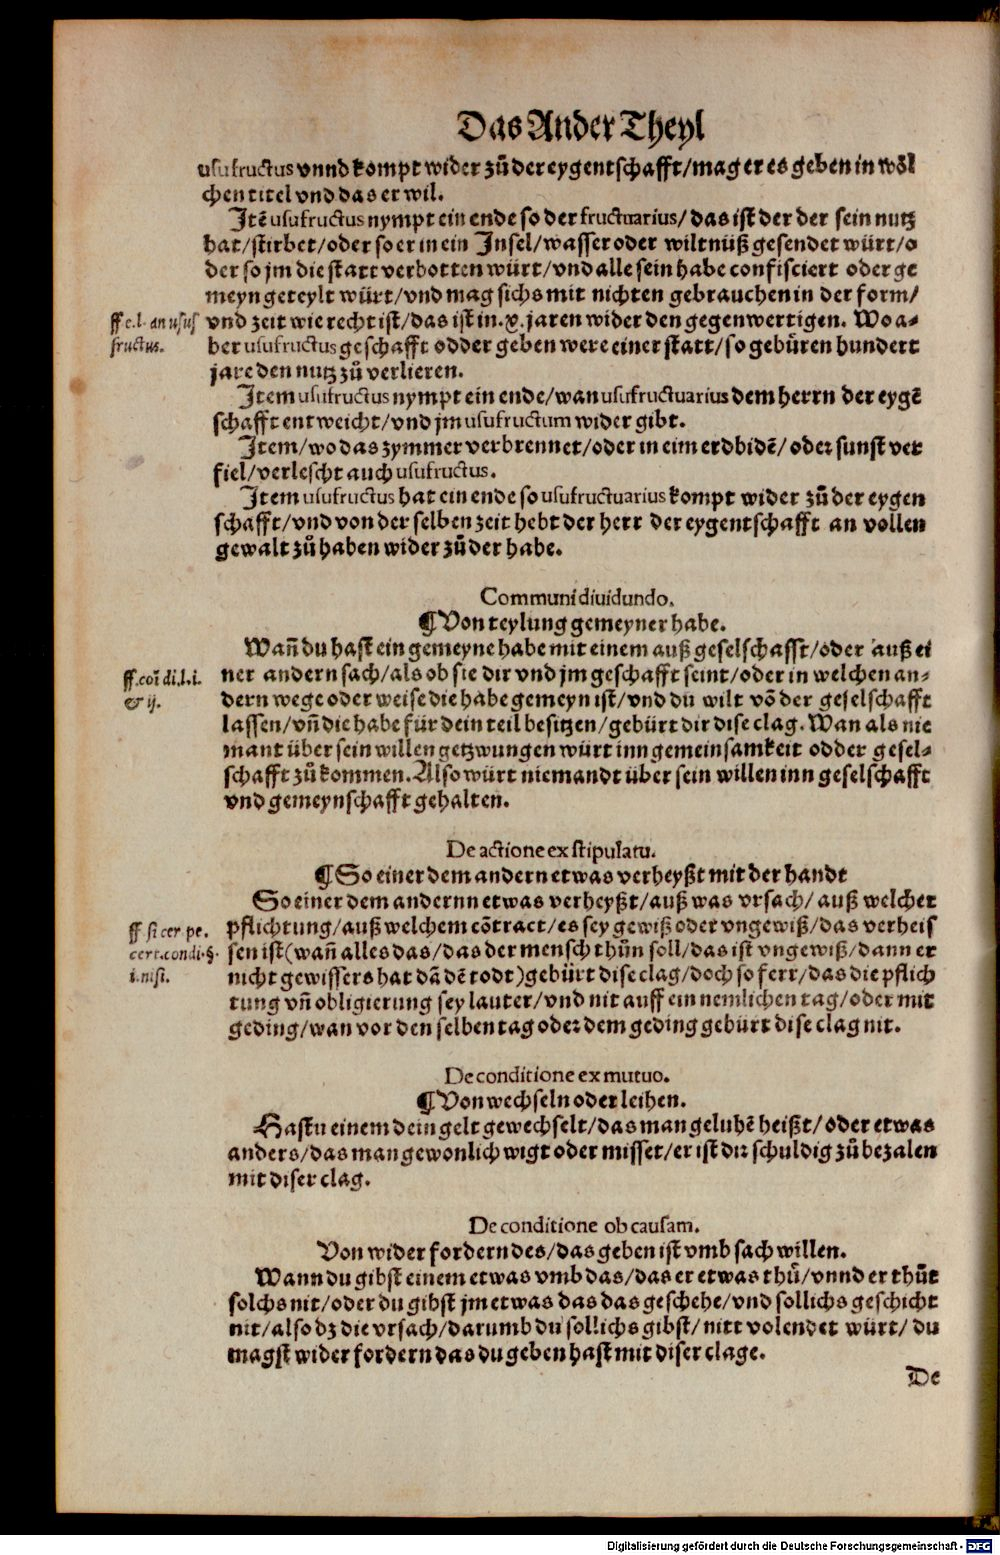 Das Ander Theyl
usufructus vnnd kompt wider zů der eygentschafft/mag er es geben in wöl
chen titel vnd das er wil.
Jtẽ usufructus nympt ein ende so der fructuarius/das ist der der sein nutz
hat/stirbet/oder so er in ein Jnsel/wasser oder wiltnüß gesendet würt/o
der so jm die statt verbotten würt/vnd alle sein habe confisciert oder ge
meyn geteylt würt/vnd mag sichs mit nichten gebrauchen in der form/
ff e.l. an usus
fructus.
vnd zeit wie recht ist/das ist in.x.jaren wider den gegenwertigen. Wo a-
ber usufructus geschafft odder geben were einer statt/so gebüren hundert
jare den nutz zů verlieren.
Jtem usufructus nympt ein ende/wan usufructuarius dem herrn der eygẽ
schafft entweicht/vnd jm usufructum wider gibt.
Jtem/wo das zymmer verbrennet/oder in eim erdbidẽ/oder sunst ver
fiel/verlescht auch usufructus.
Jtem usufructus hat ein ende so usufructuarius kompt wider zů der eygen
schafft/vnd von der selben zeit hebt der herr der eygentschafft an vollen
gewalt zů haben wider zů der habe.
Communi diuidundo.
¶Von teylung gemeyner habe.
Wañ du hast ein gemeyne habe mit einem auß geselschafft/oder auß ei
ff.coĩ di.l.i.
& ij.
ner andern sach/als ob sie dir vnd jm geschafft seint/oder in welchen an-
dern wege oder weise die habe gemeyn ist/vnd du wilt võ der geselschafft
lassen/vñ die habe für dein teil besitzen/gebürt dir dise clag. Wan als nie
mant über sein willen getzwungen würt inn gemeinsamkeit odder gesel-
schafft zů kommen. Also würt niemandt über sein willen inn geselschafft
vnd gemeynschafft gehalten.
De actione ex stipulatu.
¶So einer dem andern etwas verheyßt mit der handt
So einer dem andernn etwas verheyßt/auß was vrsach/auß welcher
ff si cer pe.
cert.condi.§.
i.nisi.
pflichtung/auß welchem cõtract/es sey gewiß oder vngewiß/das verheis
sen ist(wañ alles das/das der mensch thůn soll/das ist vngewiß/dann er
nicht gewissers hat dã dẽ todt)gebürt dise clag/doch so ferr/das die pflich
tung vñ obligierung sey lauter/vnd nit auff ein nemlichen tag/oder mit
geding/wan vor den selben tag oder dem geding gebürt dise clag nit.
De conditione ex mutuo.
¶Von wechseln oder leihen.
Hastu einem dein gelt gewechselt/das man geluhẽ heißt/oder etwas
anders/das man gewonlich wigt oder misset/er ist dir schuldig zů bezalen
mit diser clag.
De conditione ob causam.
Von wider fordern des/das geben ist vmb sach willen.
Wann du gibst einem etwas vmb das/das er etwas thů/vnnd er thůt
solchs nit/oder du gibst jm etwas das das geschehe/vnd sollichs geschicht
nit/also dz die vrsach/darumb du sollichs gibst/nitt volendet würt/du
magst wider fordern das du geben hast mit diser clage.
De
Digitalisierung gefördert durch die Deutsche Forschungsgemeinschaft - DFG